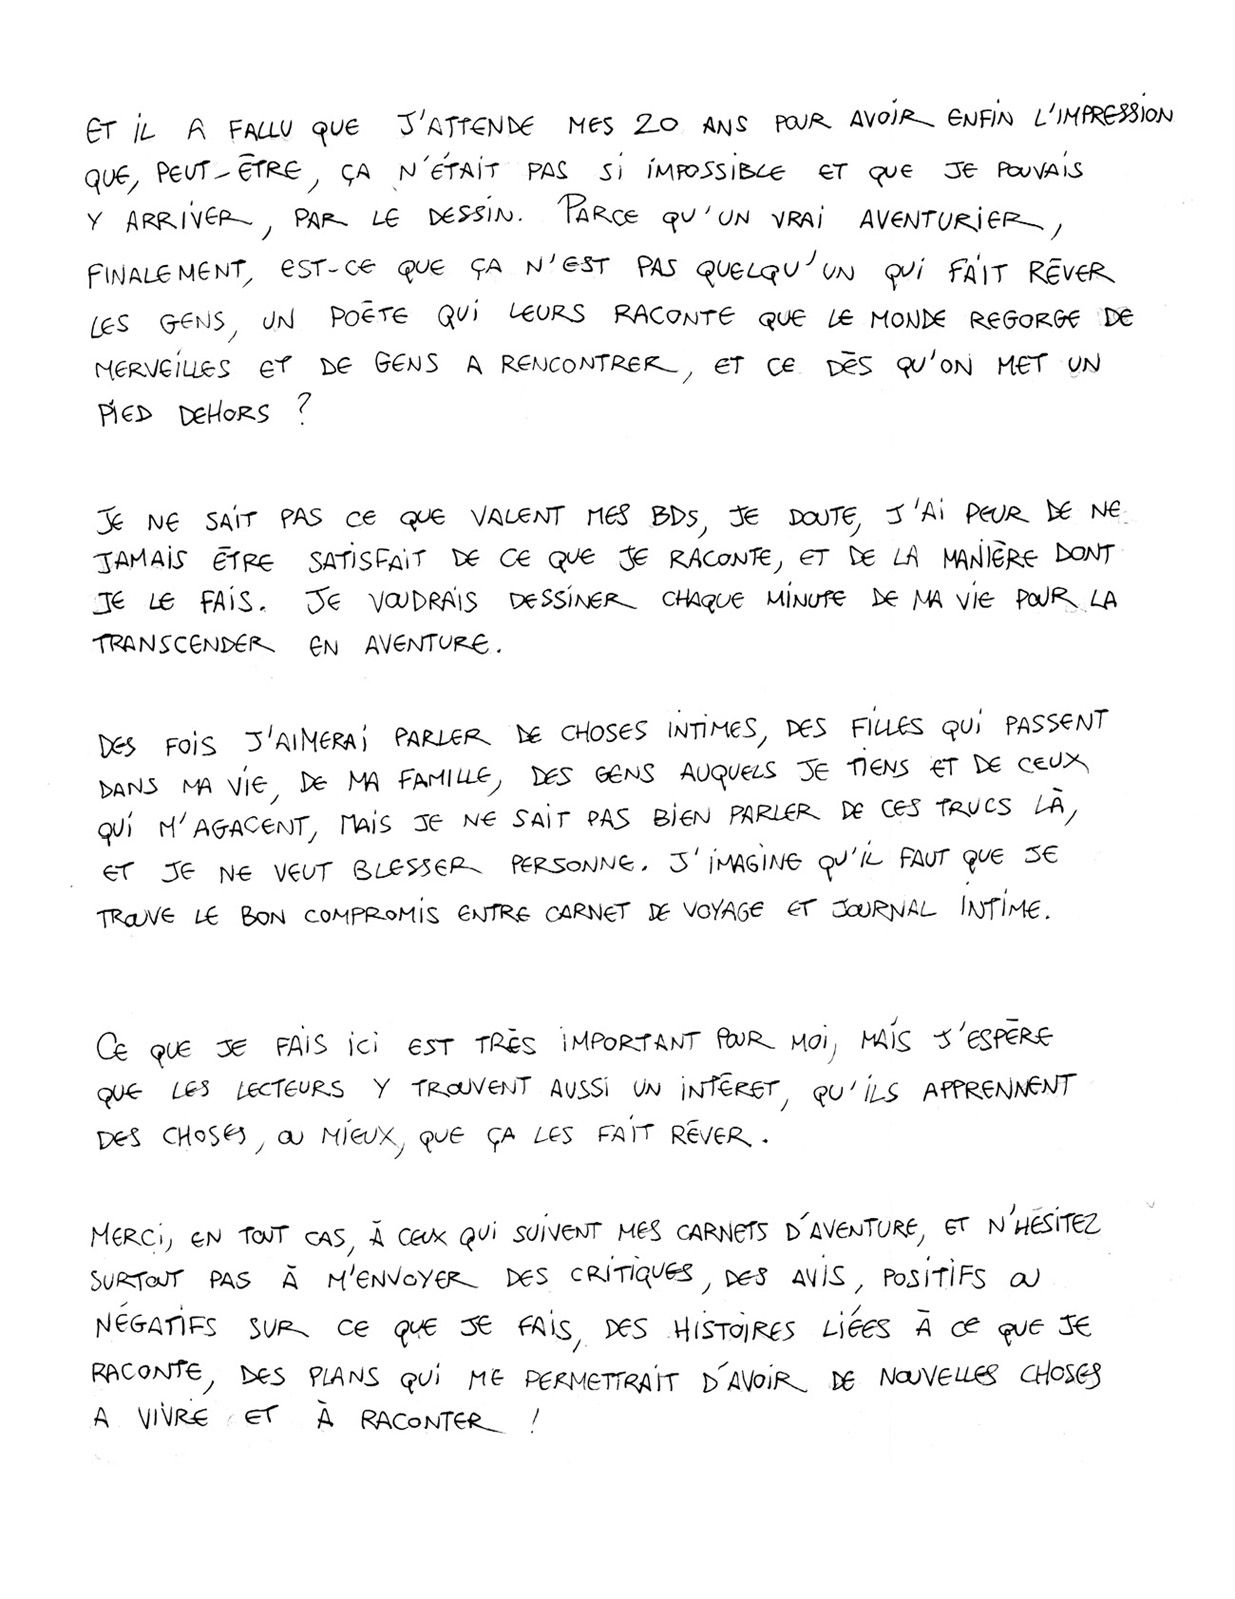 ET IL A FALLU QUE J'ATTENDE MES 20 ANS POUR AVOIR ENFIN L'IMPRESSION
QUE, PEUT-ÊTRE, ÇA N'ÉTAIT PAS SI IMPOSSIBLE ET QUE JE POUVAIS
Y ARRIVER, PAR LE DESSIN. PARCE QU'UN VRAI AVENTURIER,
FINALEMENT, EST-CE QUE ÇA N'EST PAS QUELQU'UN QUI FAIT RÊVER
LES GENS, UN POÊTE QUI LEURS RACONTE QUE LE MONDE REGORGE DE
MERVEILLES ET DE GENS A RENCONTRER, ET CE DÈS QU'ON MET UN
PIED DEHORS ?
JE NE SAIT PAS CE QUE VALENT MES BDS, JE DOUTE, J'AI PEUR DE NE
JAMAIS ÊTRE SATISFAIT DE CE QUE JE RACONTE, ET DE LA MANIÈRE DONT
JE LE FAIS. JE VOUDRAIS DESSINER CHAQUE MINUTE DE MA VIE POUR LA
TRANSCENDER EN AVENTURE.
DES FOIS J'AIMERAI PARLER DE CHOSES INTIMES, DES FILLES QUI PASSENT
DANS MA VIE, DE MA FAMILLE, DES GENS AUQUELS JE TIENS ET DE CEUX
QUI M'AGACENT, MAIS JE NE SAIT PAS BIEN PARLER DE CES TRUCS LÀ,
ET JE NE VEUT BLESSER PERSONNE. J'IMAGINE QU'IL FAUT QUE JE
TROUVE LE BON COMPROMIS ENTRE CARNET DE VOYAGE ET JOURNAL INTIME.
CE QUE JE FAIS ICI EST TRÈS IMPORTANT POUR MOI, MAIS J'ESPÈRE
QUE LES LECTEURS Y TROUVENT AUSSI UN INTÊRET, QU'ILS APPRENNENT
DES CHOSES, OU MIEUX, QUE ÇA LES FAIT RÊVER.
MERCI, EN TOUT CAS, À CEUX QUI SUIVENT MES CARNETS D'AVENTURE, ET N'HÉSITEZ
SURTOUT PAS À M'ENVOYER DES CRITIQUES, DES AVIS, POSITIFS OU
NÉGATIFS SUR CE QUE JE FAIS, DES HISTOIRES LIÉES À CE QUE JE
RACONTE, DES PLANS QUI ME PERMETTRAIT D'AVOIR DE NOUVELLES CHOSES
A VIVRE ET À RACONTER !